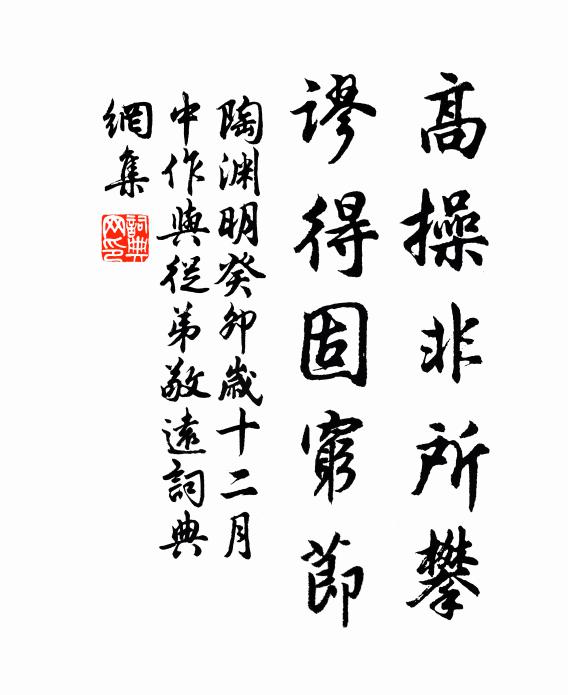 高操非所攀
謬得固窮節
陶渊明癸卯歲十二月
中作與從弟敬遠詞典
網集
詞典
网印